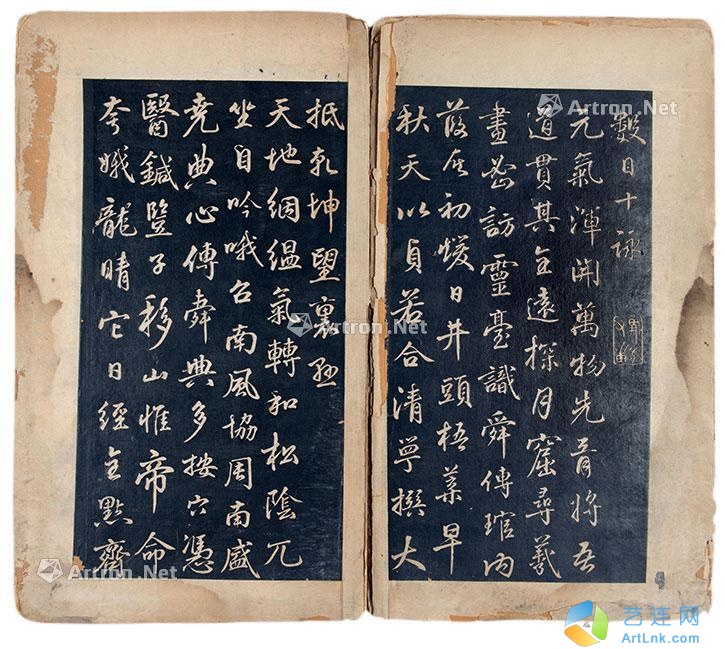 數目十詠
元氣渾開萬物先胥將吾
道貫其全遠探月窟尋羲
畫密訪靈臺識舜傳琯內
葭灰初煖日井頭梧葉早
秋天以貞若合清寧撰大
抵乾坤望裏
天地絪縕氣轉和松陰兀
坐自吟哦召南風協周南盛
堯典心傳舜典多按穴憑
醫鍼豎子移山惟帝命
夸娥龍睛它日經全點齊
Artron.Net
Artron.Net
Artron.Net
Artron.Net
Artron.Net
Artron.Net
艺连网
ArtLnk.com